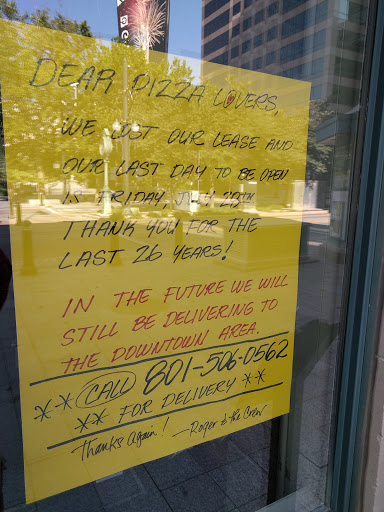 DEAR PIZZA LOVERS,
WE LOST OUR LEASE AND
OUR LAST DAY TO BE OPEN
IS FRIDAY, JULY 28TH
THANK YOU FOR THE
LAST 26 YEARS!
IN THE FUTURE WE WILL
STILL BE DELIVERING TO
THE DOWNTOWN AREA.
** CALL 801-506-0562
** FOR DELIVERY **
Thanks Again! —Roger & the Crew